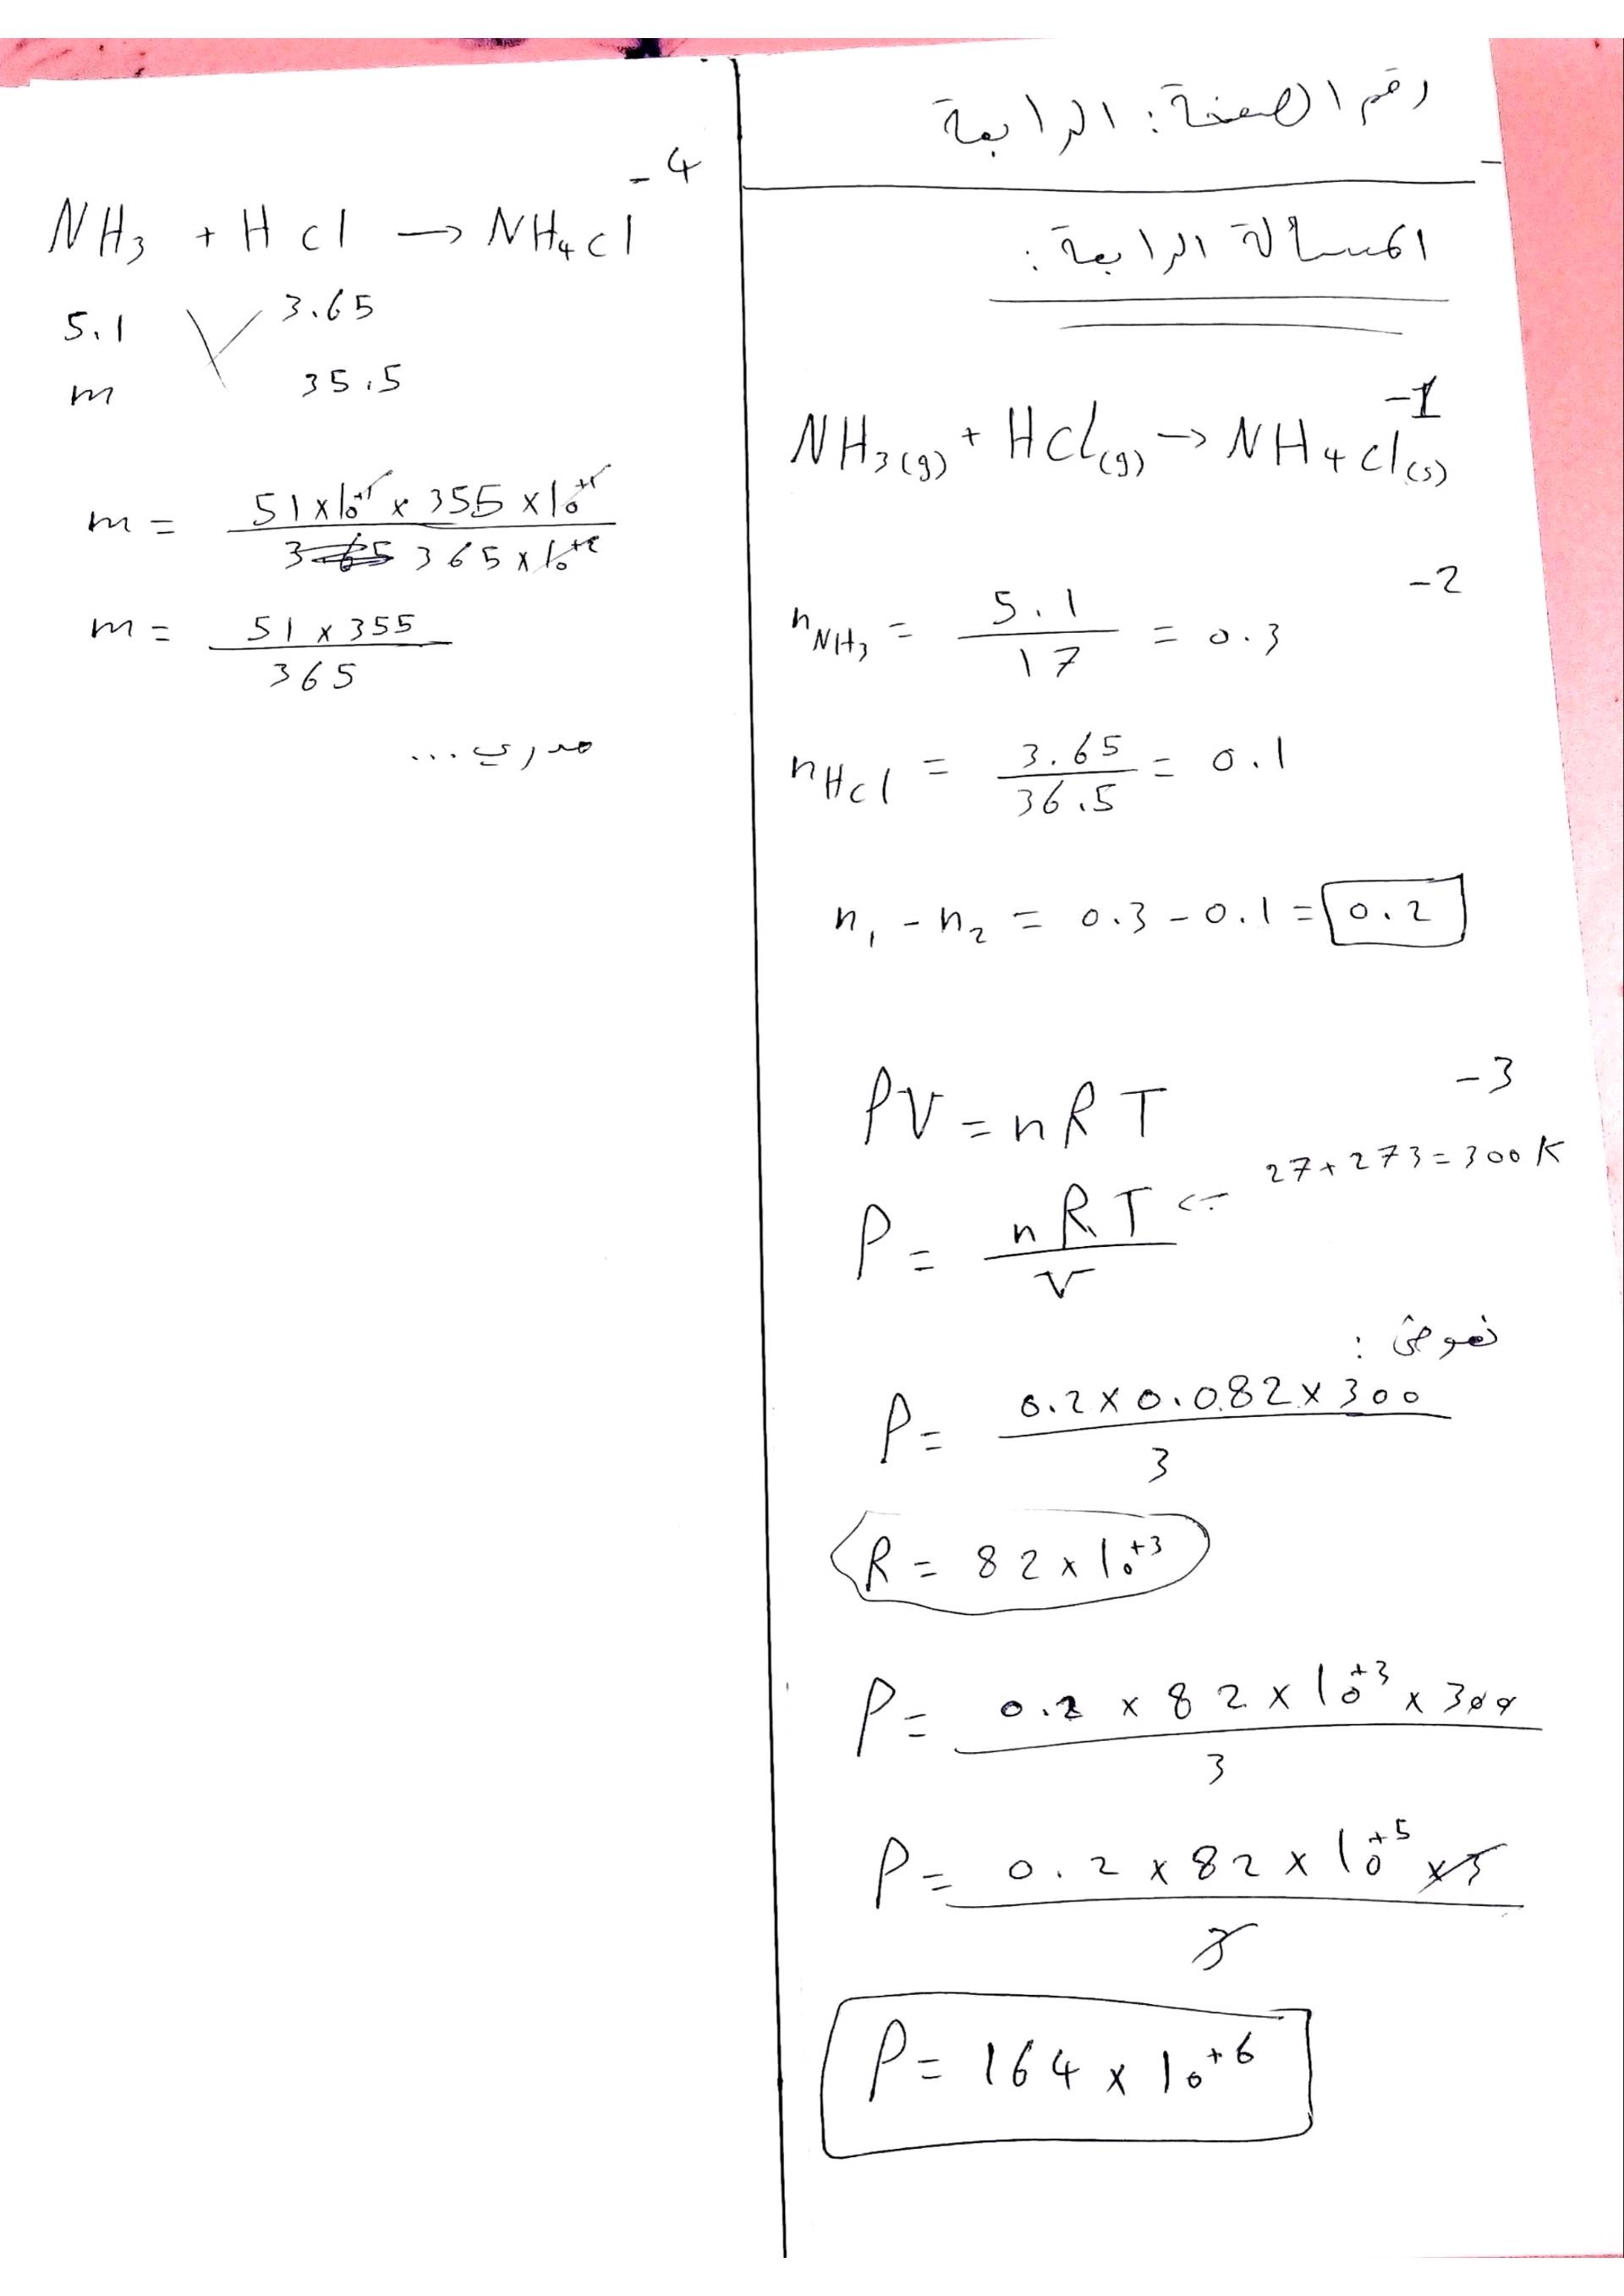 رقم الصفحة: الرابعة
المسالة الرابعة:
-1
NH₃(g) + HCl(g) → NH₄Cl(s)
-2
n NH₃ = 5.1 / 17 = 0.3
n HCl = 3.65 / 36.5 = 0.1
n₁ - n₂ = 0.3 - 0.1 = 0.2
-3
PV = nRT
27 + 273 = 300 K
P = nRT / V ⇐
نعوض:
P = 0.2 × 0.082 × 300 / 3
R = 82 × 10⁺³
P = 0.2 × 82 × 10⁺³ × 300 / 3
P = 0.2 × 82 × 10⁺⁵ × 3 / 3
P = 164 × 10⁺⁶
-4
NH₃ + HCl → NH₄Cl
5.1 3.65
m 35.5
m = 51 × 10⁺¹ × 355 × 10⁺¹ / 365 × 10⁺²
m = 51 × 355 / 365
مدري...